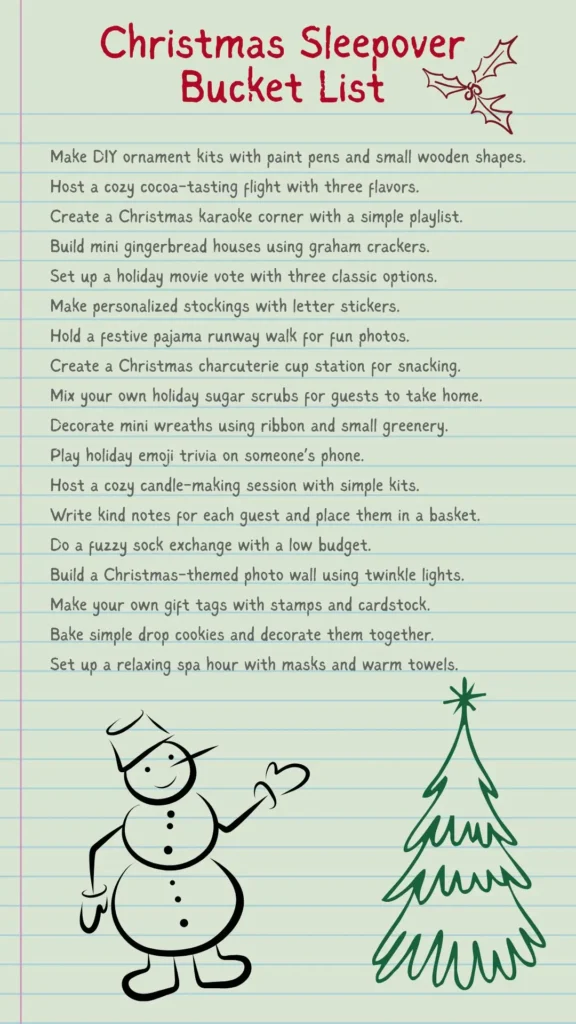 Christmas Sleepover
Bucket List
Make DIY ornament kits with paint pens and small wooden shapes.
Host a cozy cocoa-tasting flight with three flavors.
Create a Christmas karaoke corner with a simple playlist.
Build mini gingerbread houses using graham crackers.
Set up a holiday movie vote with three classic options.
Make personalized stockings with letter stickers.
Hold a festive pajama runway walk for fun photos.
Create a Christmas charcuterie cup station for snacking.
Mix your own holiday sugar scrubs for guests to take home.
Decorate mini wreaths using ribbon and small greenery.
Play holiday emoji trivia on someone's phone.
Host a cozy candle-making session with simple kits.
Write kind notes for each guest and place them in a basket.
Do a fuzzy sock exchange with a low budget.
Build a Christmas-themed photo wall using twinkle lights.
Make your own gift tags with stamps and cardstock.
Bake simple drop cookies and decorate them together.
Set up a relaxing spa hour with masks and warm towels.